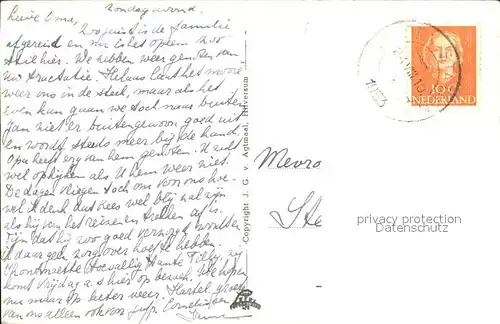 Zondagavond,
Lieve Oma,
Zoo juist is de familie
afgereisd en nu is het opeens zoo
stil hier. We hebben weer genoten van
uw tractatie. Helaas laat het mooie
weer ons in de steek, maar als het
even kan gaan we toch naar buiten
Jan ziet er buitengewoon goed uit
en wordt steeds meer bij de hand.
Opa heeft erg van hem genoten. U zult
wel opkijken als U hem weer ziet.
De dagen vliegen toch om voor ons hoe-
wel ik denk dat Kees wel blij zal zijn
als hij van het reizen en trekken af is.
Fijn dat hij zoo goed verzorgd wordt en
U daar geen zorg over hoeft te hebben.
Tante Tilly, zij
komt Vrijdag a.s. hier op bezoek. We hopen
nu maar op beter weer. Hartel. groeten
van ons allen ook van Cornelissen
Copyright J. G. v. Agtmaal, Hilversum
Mevro
Ste
1953
10 c
NEDERLAND
privacy protection
Datenschutz